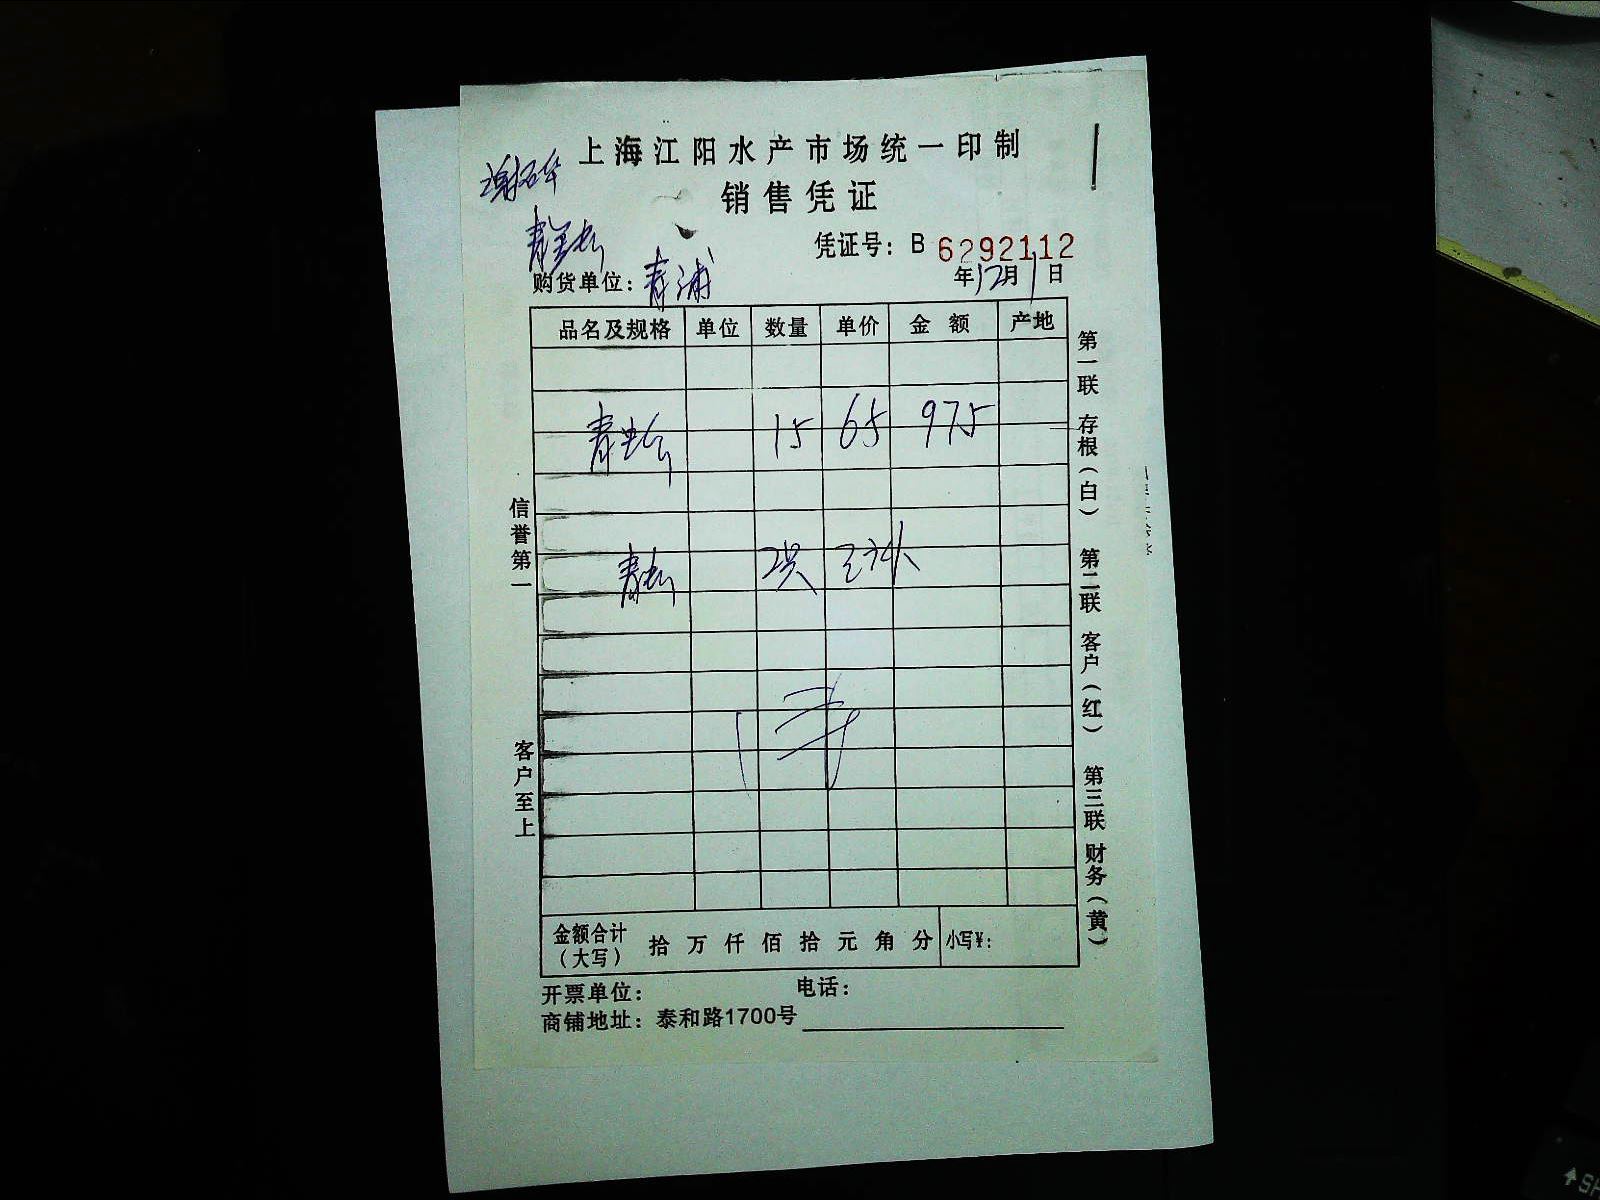 上海江阳水产市场统一印制
销售凭证
凭证号：B 6292112
购货单位：青浦
年12月1日
品名及规格 单位 数量 单价 金额 产地
青蛤 15 65 975
信誉第一
客户至上
第一联 存根（白） 第二联 客户（红） 第三联 财务（黄）
金额合计（大写） 拾 万 仟 佰 拾 元 角 分 小写¥：
开票单位： 电话：
商铺地址：泰和路1700号